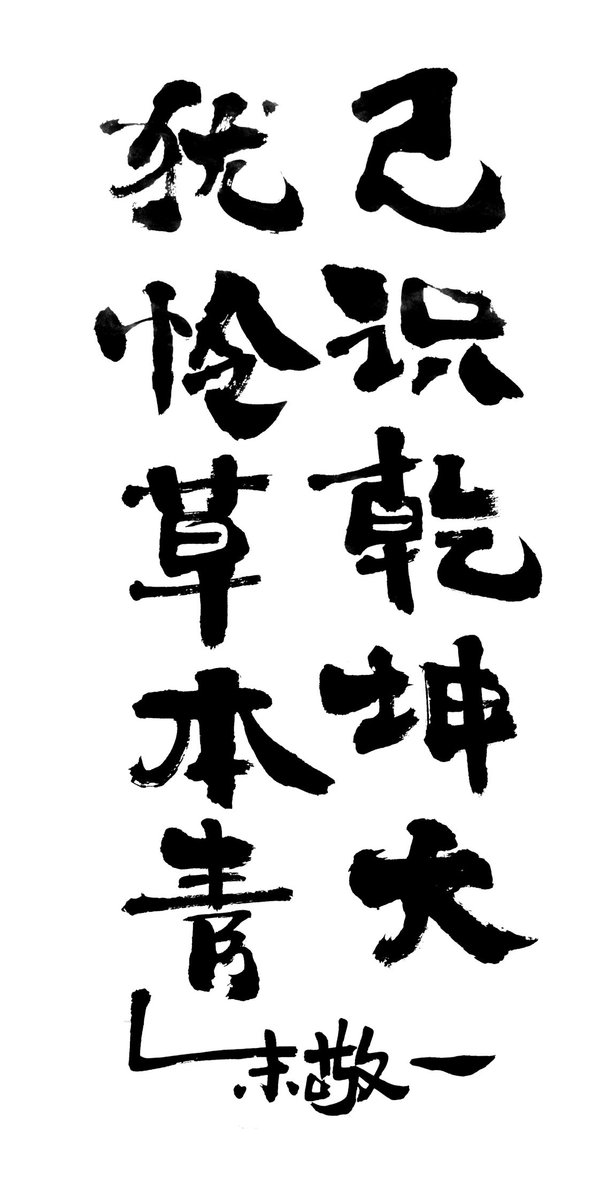 已识乾坤大
犹怜草本青
朱敬一